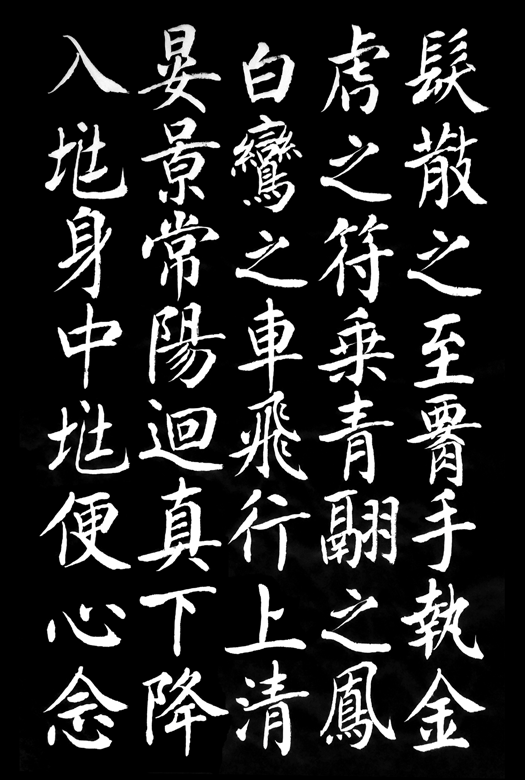 髮散之至腰手執金
虎之符乗青翮之鳳
白鸞之車飛行上清
晏景常陽迴真下降
入垗身中垗便心念